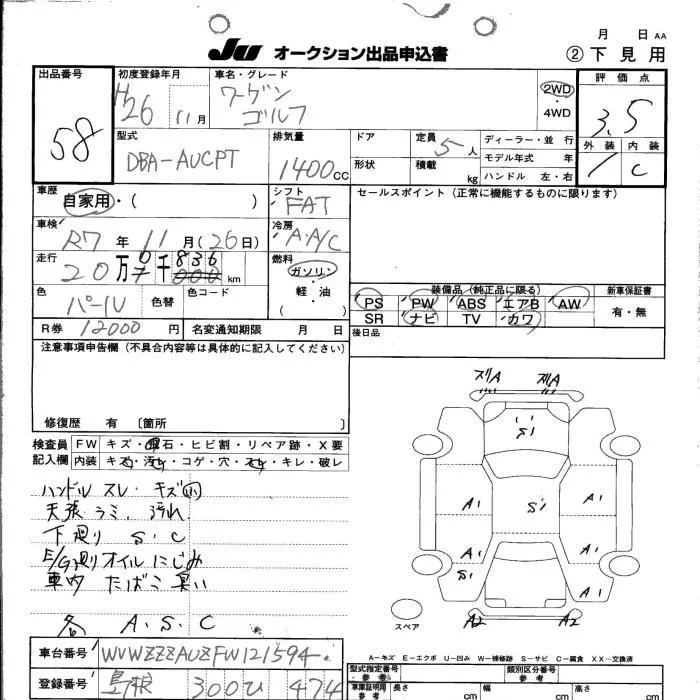 JU オークション出品申込書
月 日 AA
② 下見用
出品番号 初度登録年月 車名・グレード 評価点
58 H26 11月 ワーゲン ゴルフ 2WD・4WD 3.5
外装 内装
1 C
型式 排気量 ドア 定員 5人 ディーラー・並行
DBA-AUCPT 1400CC モデル年式 年
形状 積載 kg ハンドル 左・右
車歴 自家用・( ) シフト FAT セールスポイント(正常に機能するものに限ります)
車検 R7年 11月(26日) 冷房 A.A/C
走行 20万 千 836 000 km 燃料 ガソリン・軽油 ( )
色 パール 色替 色コード
装備品(純正品に限る) 新車保証書
PS PW ABS エアB AW 有・無
SR ナビ TV カワ
R券 12000円 名変通知期限 月 日 後日品
注意事項申告欄(不具合内容等は具体的に記入してください)
修復歴 有 〔箇所 〕
検査員記入欄 FW キズ・飛石・ヒビ割・リペア跡・X要
内装 キズ・汚れ・コゲ・穴・スレ・キレ・破レ
ハンドル スレ・キズ
天張ラミ、汚れ
下廻り S・C
E/G廻りオイルにじみ
車内 たばこ臭い
各 A.S.C
ズリA ズリA
S1
A1 S1 A1
A1 A1
S1 A1
A2 A2
スペア
A…キズ E…エクボ U…凹み W…補修跡 S…サビ C…腐食 XX…交換済
車台番号 WVWZZZAUZFW121594
型式指定番号 ・参考 類別区分番号 ・参考
登録番号 島根 300ひ 474
車庫証明用 参考 長さ cm 幅 cm 高さ cm